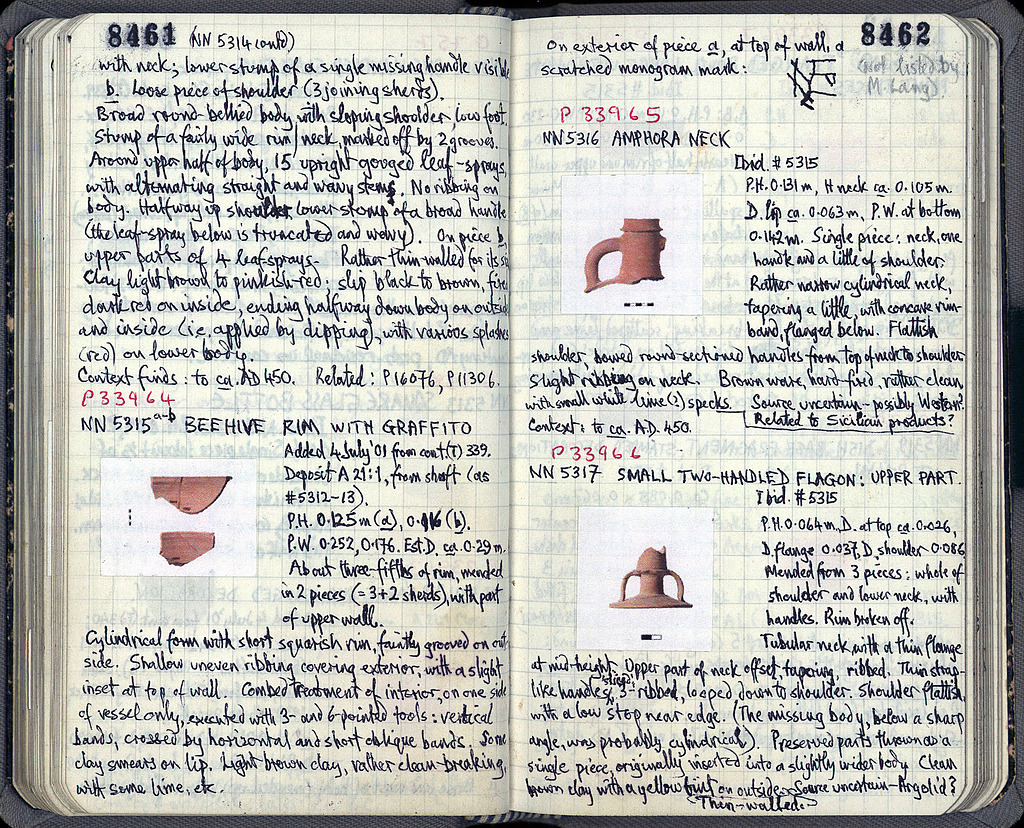 8461 (NN 5314 contd)
with neck; lower stump of a single missing handle visible
b. Loose piece of shoulder (3 joining sherds).
Broad round-bellied body with sloping shoulder, low foot
stump of a fairly wide rim/neck, marked off by 2 grooves.
Around upper half of body, 15 upright gouged leaf-sprays,
with alternating straight and wavy stems. No ribbing on
body. Halfway up shoulder lower stump of a broad handle
(the leaf-spray below is truncated and wavy). On piece b,
upper parts of 4 leaf sprays. Rather thin-walled for its
Clay light brown to pinkish-red; slip black to brown, fired
dark red on inside, ending halfway down body on outside
and inside (i.e. applied by dipping), with various splashes
(red) on lower body.
Context finds: to ca. AD 450. Related: P 16076, P 11306.
P 33964
NN 5315 a-b BEEHIVE RIM WITH GRAFFITO
Added 4 July '01 from cont(T) 339.
Deposit A 21:1, from shaft (as
#5312-13).
P.H. 0.125m (a), 0.116 (b).
P.W. 0.252, 0.176. Est. D. ca. 0.29 m.
About three-fifths of rim, mended
in 2 pieces (= 3+2 sherds), with part
of upper wall.
Cylindrical form with short squarish rim, faintly grooved on out
side. Shallow uneven ribbing covering exterior, with a slight
inset at top of wall. Combed treatment of interior, on one side
of vessel only, executed with 3- and 6-pointed tools: vertical
bands, crossed by horizontal and short oblique bands. Some
clay smears on lip. Light brown clay, rather clean-breaking,
with some lime, etc.
8462
On exterior of piece a, at top of wall, a
scratched monogram mark:
(not listed by
M Lang)
P 33965
NN 5316 AMPHORA NECK
Ibid. #5315
P.H. 0.131 m, H neck ca. 0.105 m.
D. lip ca. 0.063 m, P.W. at bottom
0.142 m. Single piece: neck, one
handle and a little of shoulder.
Rather narrow cylindrical neck,
tapering a little, with concave rim-
band, flanged below. Flattish
shoulder, bowed round-sectioned handles from top of neck to shoulder
Slight ribbing on neck. Brown ware, hard-fired, rather clean,
with small white lime(?) specks. Source uncertain - possibly Western?
Context: to ca. A.D. 450. Related to Sicilian products?
P 33966
NN 5317 SMALL TWO-HANDLED FLAGON: UPPER PART.
Ibid. #5315
P.H. 0.064 m, D. at top ca. 0.026,
D. flange 0.037, D. shoulder 0.086
Mended from 3 pieces: whole of
shoulder and lower neck, with
handles. Rim broken off.
Tubular neck with a thin flange
at mid-height. Upper part of neck offset, tapering, ribbed. Thin strap-
like handles, 3-ribbed, looped down to shoulder. Shoulder flattish
with a low step near edge. (The missing body, below a sharp
angle, was probably cylindrical). Preserved parts thrown as a
single piece, originally inserted into a slightly wider body. Clean
brown clay with a yellow tint on outside. Source uncertain - Argolid?
Thin-walled.